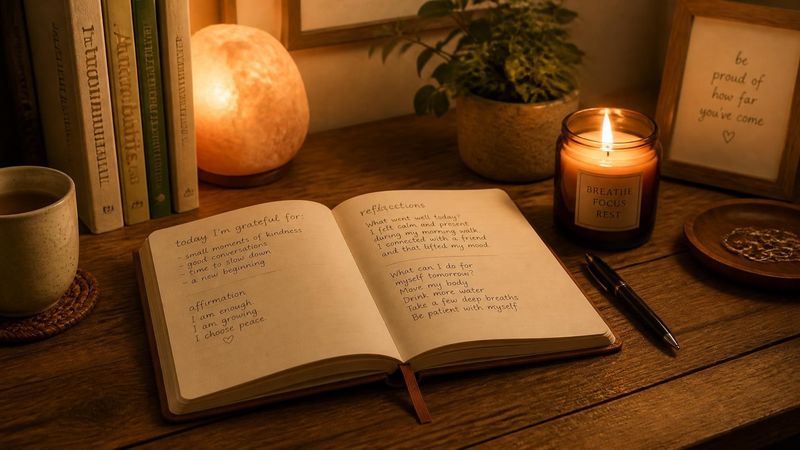 today I'm grateful for:
- small moments of kindness
- good conversations
- time to slow down
- a new beginning
affirmation
I am enough
I am growing
I choose peace
reflections
What went well today?
I felt calm and present
during my morning walk
I connected with a friend
and that lifted my mood.
What can I do for
myself tomorrow?
Move my body
Drink more water
Take a few deep breaths
Be patient with myself
BREATHE
FOCUS
REST
be
proud of
how far
you've come